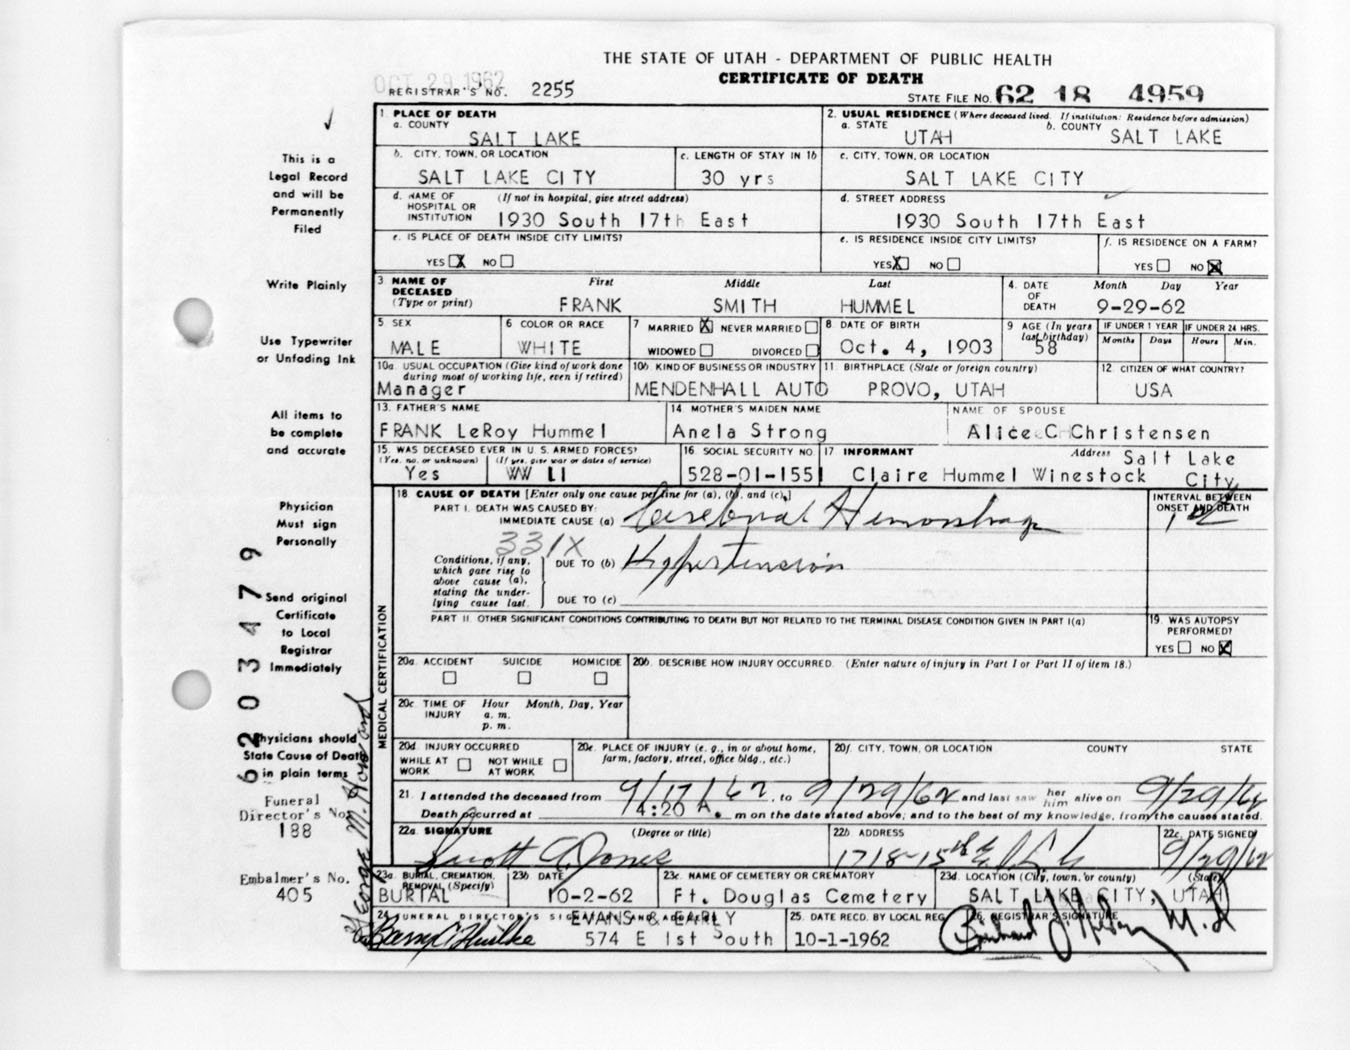 THE STATE OF UTAH - DEPARTMENT OF PUBLIC HEALTH
CERTIFICATE OF DEATH
OCT 29 1962
REGISTRAR'S NO. 2255
STATE FILE NO. 62 18 4959
This is a
Legal Record
and will be
Permanently
Filed
Write Plainly
Use Typewriter
or Unfading Ink
All items to
be complete
and accurate
Physician
Must sign
Personally
Send original
Certificate
to Local
Registrar
Immediately
Physicians should
State Cause of Death
in plain terms
Funeral
Director's No.
188
Embalmer's No.
405
62 03479
George M. Howard
1. PLACE OF DEATH
a. COUNTY
SALT LAKE
2. USUAL RESIDENCE (Where deceased lived. If institution: Residence before admission)
a. STATE UTAH b. COUNTY SALT LAKE
b. CITY, TOWN, OR LOCATION
SALT LAKE CITY
c. LENGTH OF STAY IN 1b
30 yrs
c. CITY, TOWN, OR LOCATION
SALT LAKE CITY
d. NAME OF HOSPITAL OR INSTITUTION (If not in hospital, give street address)
1930 South 17th East
d. STREET ADDRESS
1930 South 17th East
e. IS PLACE OF DEATH INSIDE CITY LIMITS?
YES X NO
e. IS RESIDENCE INSIDE CITY LIMITS?
YES X NO
f. IS RESIDENCE ON A FARM?
YES NO X
3. NAME OF DECEASED (Type or print)
First Middle Last
FRANK SMITH HUMMEL
4. DATE OF DEATH Month Day Year
9-29-62
5 SEX
MALE
6 COLOR OR RACE
WHITE
7 MARRIED X NEVER MARRIED
WIDOWED DIVORCED
8 DATE OF BIRTH
Oct. 4, 1903
9 AGE (In years last birthday)
58
IF UNDER 1 YEAR
Months Days
IF UNDER 24 HRS.
Hours Min.
10a. USUAL OCCUPATION (Give kind of work done during most of working life, even if retired)
Manager
10b KIND OF BUSINESS OR INDUSTRY
MENDENHALL AUTO
11. BIRTHPLACE (State or foreign country)
PROVO, UTAH
12. CITIZEN OF WHAT COUNTRY?
USA
13. FATHER'S NAME
FRANK LeRoy Hummel
14 MOTHER'S MAIDEN NAME
Anela Strong
NAME OF SPOUSE
Alice C Christensen
15. WAS DECEASED EVER IN U. S. ARMED FORCES?
(Yes, no, or unknown) (If yes, give war or dates of service)
Yes WW II
16. SOCIAL SECURITY NO.
528-01-1551
17 INFORMANT Address
Claire Hummel Winestock Salt Lake City
MEDICAL CERTIFICATION
18 CAUSE OF DEATH [Enter only one cause per line for (a), (b), and (c).]
INTERVAL BETWEEN ONSET AND DEATH
PART I. DEATH WAS CAUSED BY:
IMMEDIATE CAUSE (a) Cerebral Hemorrhage
331X
Conditions, if any, which gave rise to above cause (a), stating the underlying cause last.
DUE TO (b) Hypertension
DUE TO (c)
PART II. OTHER SIGNIFICANT CONDITIONS CONTRIBUTING TO DEATH BUT NOT RELATED TO THE TERMINAL DISEASE CONDITION GIVEN IN PART I(a)
19. WAS AUTOPSY PERFORMED?
YES NO X
20a. ACCIDENT SUICIDE HOMICIDE
20b. DESCRIBE HOW INJURY OCCURRED. (Enter nature of injury in Part I or Part II of item 18.)
20c. TIME OF INJURY Hour Month, Day, Year
a. m.
p. m.
20d. INJURY OCCURRED
WHILE AT WORK NOT WHILE AT WORK
20e. PLACE OF INJURY (e. g., in or about home, farm, factory, street, office bldg., etc.)
20f. CITY, TOWN, OR LOCATION COUNTY STATE
21. I attended the deceased from 9/17/62, to 9/29/62 and last saw her him alive on 9/29/62
Death occurred at 4:20 A. m on the date stated above; and to the best of my knowledge, from the causes stated.
22a. SIGNATURE (Degree or title)
Scott G. Jones
22b ADDRESS
1718-15th E. S L C
22c. DATE SIGNED
9/29/62
23a. BURIAL, CREMATION, REMOVAL (Specify)
BURIAL
23b DATE
10-2-62
23c. NAME OF CEMETERY OR CREMATORY
Ft. Douglas Cemetery
23d. LOCATION (City, town, or county) (State)
SALT LAKE CITY, UTAH
24 FUNERAL DIRECTOR'S SIGNATURE AND ADDRESS
EVANS & EARLY
574 E 1st South
25. DATE RECD. BY LOCAL REG.
10-1-1962
26. REGISTRAR'S SIGNATURE
M.D